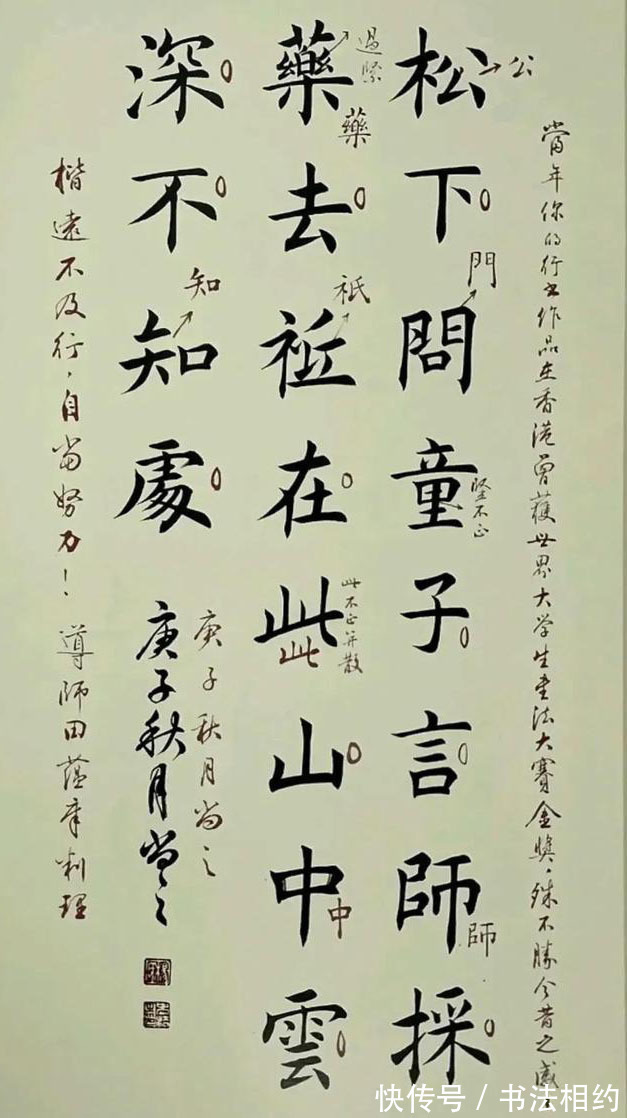 當年你的行书作品在香港曾獲世界大学生书法大賽金奬，殊不勝今昔之感
松下問童子言師採
公
門
竖不正
師
藥去祗在此山中雲
過緊
藥
祗
此不正并散
此
中
深不知處
知
庚子秋月尚之
庚子秋月尚之
楷遠不及行，自当努力！導師田蕴章判理
快传号 / 书法相约